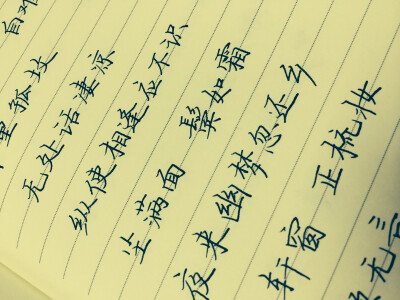 自难
里孤坟
无处话凄凉
纵使相逢应不识
尘满面 鬓如霜
夜来幽梦忽还乡
轩窗 正梳妆
无言